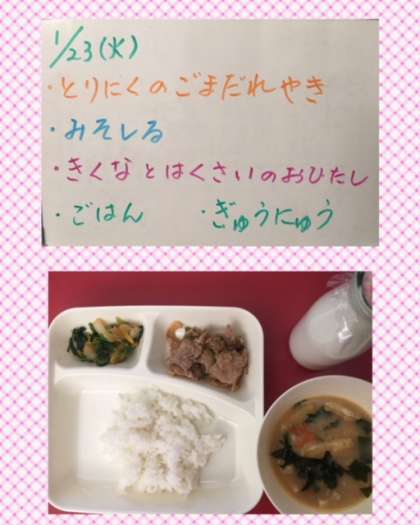 1/23(火)
・とりにくのごまだれやき
・みそしる
・きくなとはくさいのおひたし
・ごはん ・ぎゅうにゅう